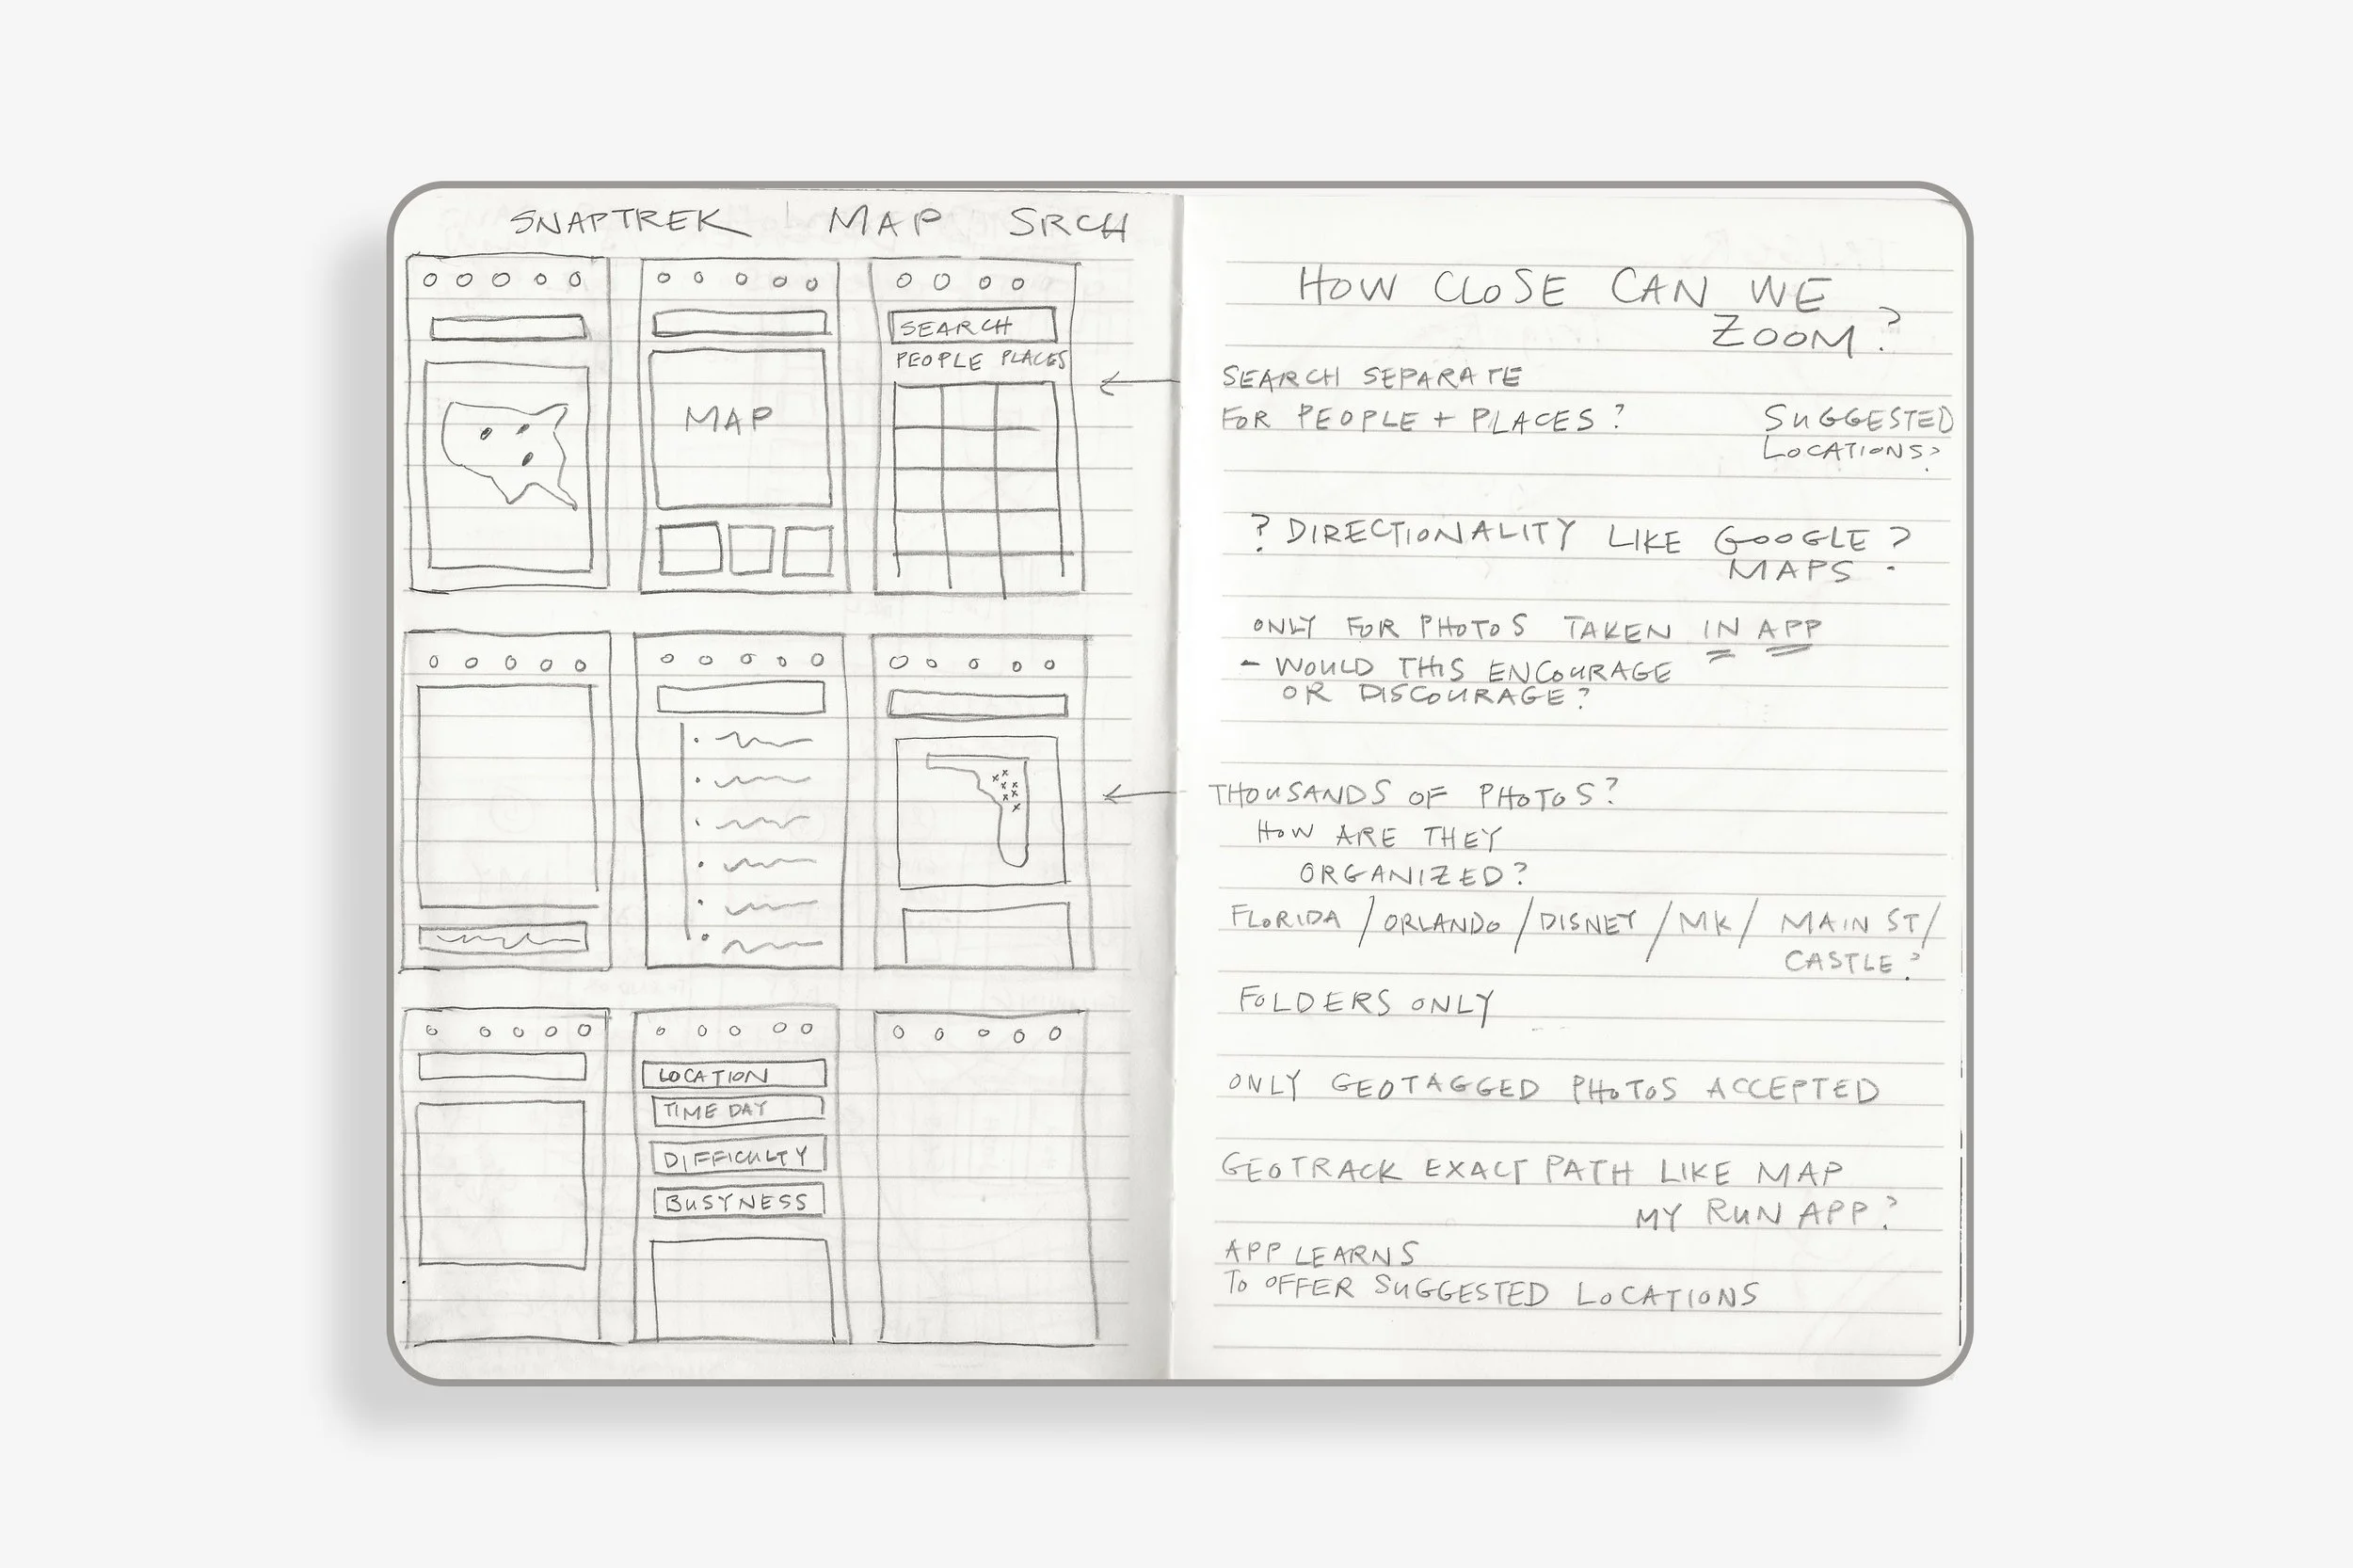 SNAPTREK | MAP SRCH
SEARCH
PEOPLE PLACES
MAP
LOCATION
TIME DAY
DIFFICULTY
BUSYNESS
HOW CLOSE CAN WE
ZOOM?
SEARCH SEPARATE
FOR PEOPLE + PLACES?
SUGGESTED
LOCATIONS?
? DIRECTIONALITY LIKE GOOGLE ?
MAPS
ONLY FOR PHOTOS TAKEN IN APP
- WOULD THIS ENCOURAGE
OR DISCOURAGE?
THOUSANDS OF PHOTOS?
HOW ARE THEY
ORGANIZED?
FLORIDA / ORLANDO / DISNEY / MK / MAIN ST/
CASTLE?
FOLDERS ONLY
ONLY GEOTAGGED PHOTOS ACCEPTED
GEOTRACK EXACT PATH LIKE MAP
MY RUN APP?
APP LEARNS
TO OFFER SUGGESTED LOCATIONS